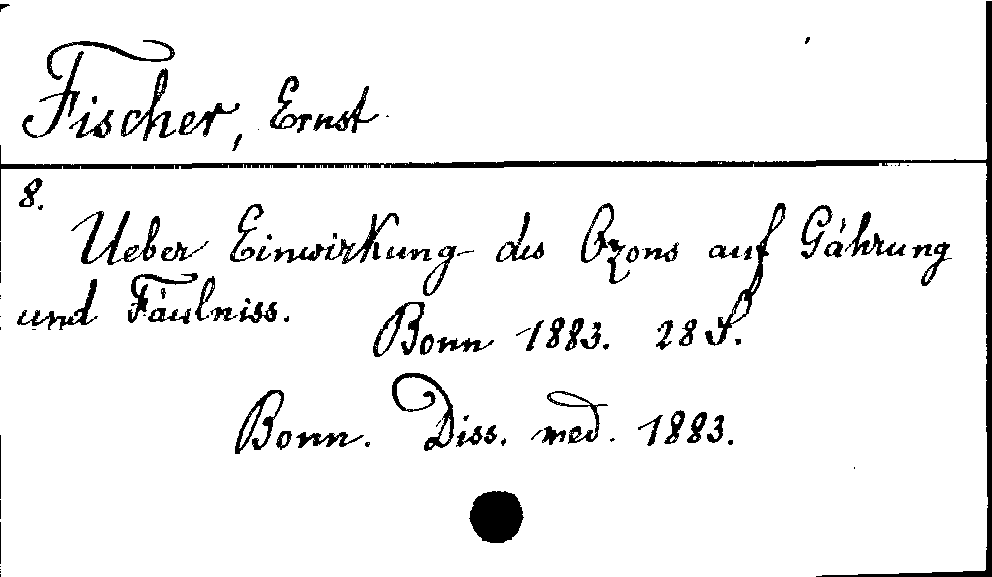 Fischer, Ernst
8.
Ueber Einwirkung des Ozons auf Gährung
und Fäulniss.
Bonn 1883. 28 S.
Bonn. Diss. med. 1883.